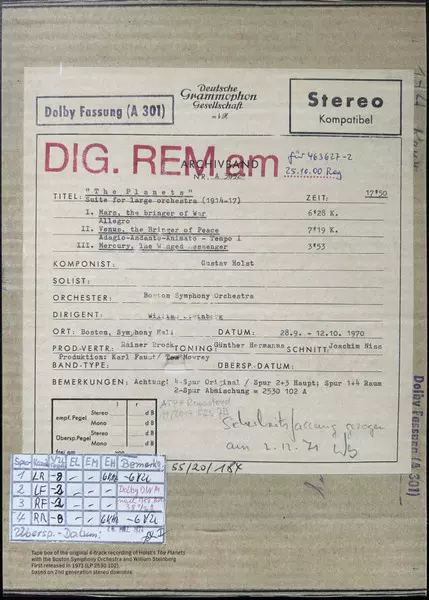 Deutsche
Grammophon
Gesellschaft
m b H
Dolby Fassung (A 301)
Stereo
Kompatibel
DIG. REM am
für 463627-2
25.10.00 Reg
ARCHIVBAND
NR.
TITEL: "The Planets" ZEIT: 17'50
Suite for large orchestra (1914-17)
I. Mars, the bringer of War 6'28 K.
Allegro
II. Venus, the Bringer of Peace 7'19 K.
Adagio-Andante-Animato - Tempo I
III. Mercury, the Winged Messenger 3'53
KOMPONIST: Gustav Holst
SOLIST:
ORCHESTER: Boston Symphony Orchestra
DIRIGENT: William Steinberg
ORT: Boston, Symphony Hall DATUM: 28.9. - 12.10. 1970
PROD-VERTR.: Rainer Brock TONING: Günther Hermanns SCHNITT: Joachim Niss
Produktion: Karl Faust/ Tom Mowrey
BAND-TYPE: ÜBERSP-DATUM:
BEMERKUNGEN: Achtung! 4-Spur Original / Spur 2+3 Haupt; Spur 1+4 Raum
2-Spur Abmischung = 2530 102 A
empf. Pegel Stereo dB
Mono dB
Übersp.Pegel Stereo dB
Mono dB
frei am
Sicherheitsfassung gezogen
am 2.12.71
55/20/184
Dolby Fassung (A 301)
Spur EL EM EH Bemerk.
1 LR
2 LF
3 RF
4 RR
Übersp.-Datum:
Tape box of the original 4-track recording of Holst's The Planets
with the Boston Symphony Orchestra and William Steinberg
First released in 1971 (LP 2530 102)
based on 2nd generation stereo downmix